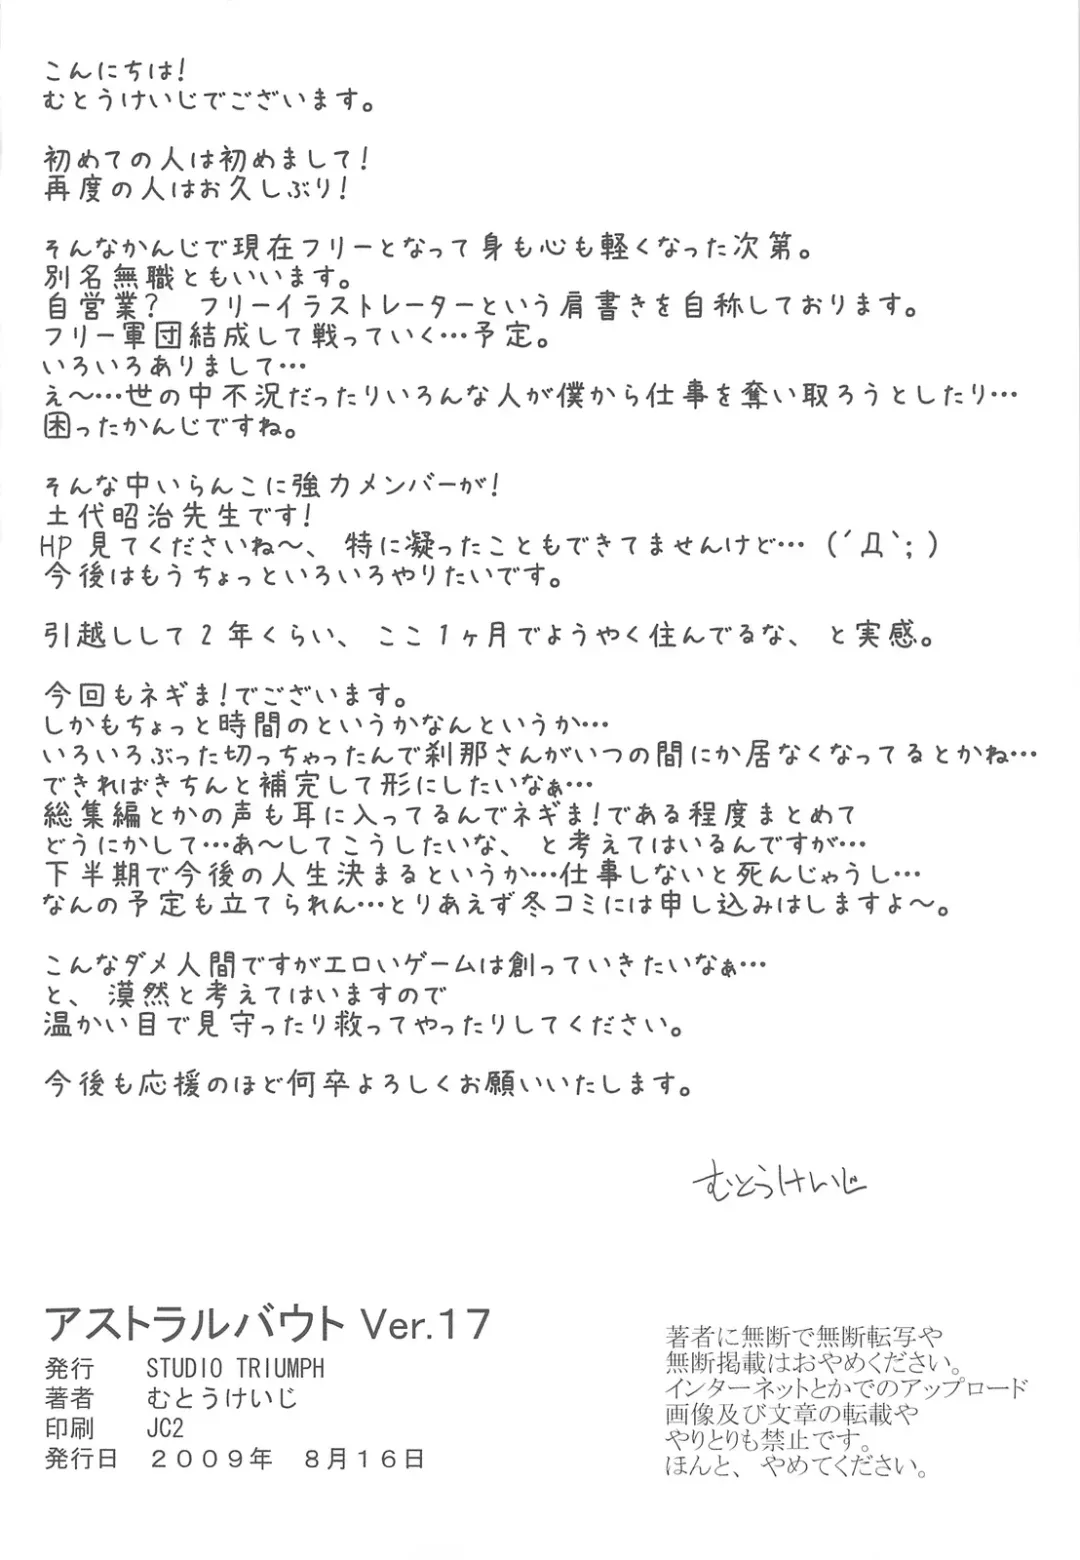 こんにちは！
むとうけいじでございます。
初めての人は初めまして！
再度の人はお久しぶり！
そんなかんじで現在フリーとなって身も心も軽くなった次第。
別名無職ともいいます。
自営業？　フリーイラストレーターという肩書きを自称しております。
フリー軍団結成して戦っていく…予定。
いろいろありまして…
え～…世の中不況だったりいろんな人が僕から仕事を奪い取ろうとしたり…
困ったかんじですね。
そんな中いらんこに強力メンバーが！
土代昭治先生です！
HP見てくださいね～、特に凝ったこともできてませんけど…（´Д｀；）
今後はもうちょっといろいろやりたいです。
引越しして2年くらい、ここ1ヶ月でようやく住んでるな、と実感。
今回もネギま！でございます。
しかもちょっと時間のというかなんというか…
いろいろぶった切っちゃったんで刹那さんがいつの間にか居なくなってるとかね…
できればきちんと補完して形にしたいなぁ…
総集編とかの声も耳に入ってるんでネギま！である程度まとめて
どうにかして…あ～してこうしたいな、と考えてはいるんですが…
下半期で今後の人生決まるというか…仕事しないと死んじゃうし…
なんの予定も立てられん…とりあえず冬コミには申し込みはしますよ～。
こんなダメ人間ですがエロいゲームは創っていきたいなぁ…
と、漠然と考えてはいますので
温かい目で見守ったり救ってやったりしてください。
今後も応援のほど何卒よろしくお願いいたします。
むとうけいじ
アストラルバウト Ver.17
発行　STUDIO TRIUMPH
著者　むとうけいじ
印刷　JC2
発行日　２００９年　８月１６日
著者に無断で無断転写や
無断掲載はおやめください。
インターネットとかでのアップロード
画像及び文章の転載や
やりとりも禁止です。
ほんと、やめてください。